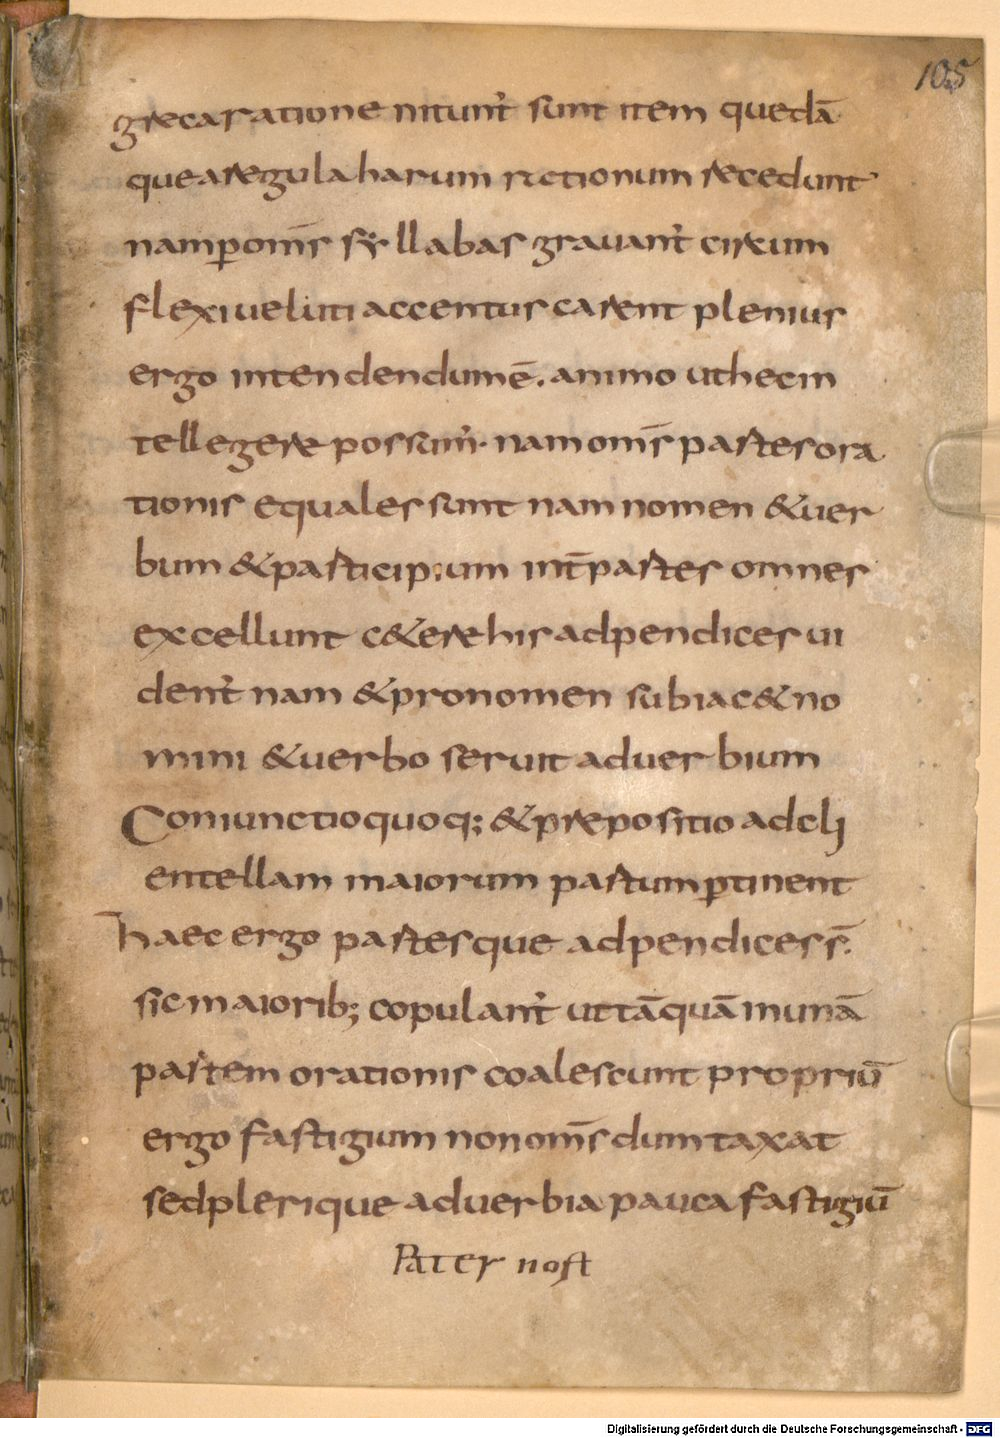 105
grecas ratione nitunt̄ sunt item quedā
que a regula harum rectionum recedunt
nam ꝑ omīs syllabas gravant̄ circum
flexi veluti accentus carent plenius
ergo intendendum ē. animo ut hec in
tellegere possum̄. nam omīs partes ora
tionis equales sunt nam nomen & ver
bum & participium int̄ partes omnes
excellunt c&ere his adpendices vi
dent̄ nam & pronomen subiac& no
mini & verbo servit adverbium
Coniunctio quoq; & prepositio ad cli
entellam maiorum partum ꝑtinent
haec ergo partes que adpendices s̄.
sic maiorib; copulant̄ ut tāquā in unā
partem orationis coalescunt propriū
ergo fastigium non omīs dum taxat
sed plerique adverbia pauca fastigiū
Pater nost
Digitalisierung gefördert durch die Deutsche Forschungsgemeinschaft - DFG